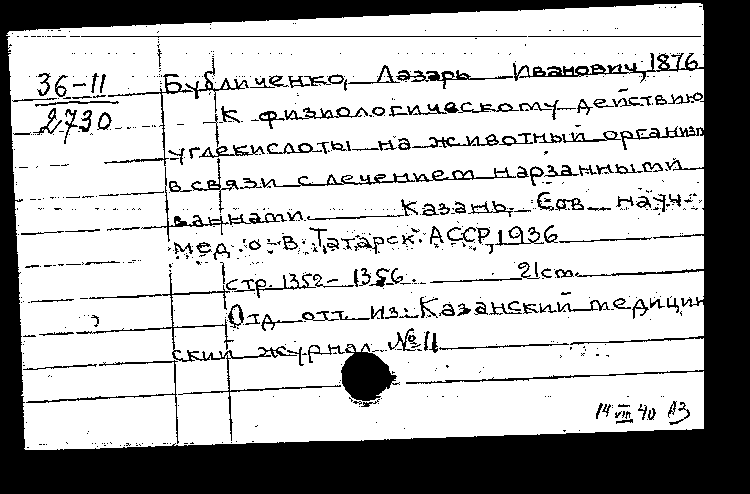 36-11
2730
Бубличенко, Лазарь Иванович, 1876
К физиологическому действию
углекислоты на животный организм
в связи с лечением нарзанными
ваннами. Казань, Сов. науч.-
мед. о-в. Татарск. АССР, 1936
стр. 1352-1356. 21 cm.
Отд. отт. из: Казанский медицин
ский журнал № 11
14 VIII 40 АЗ